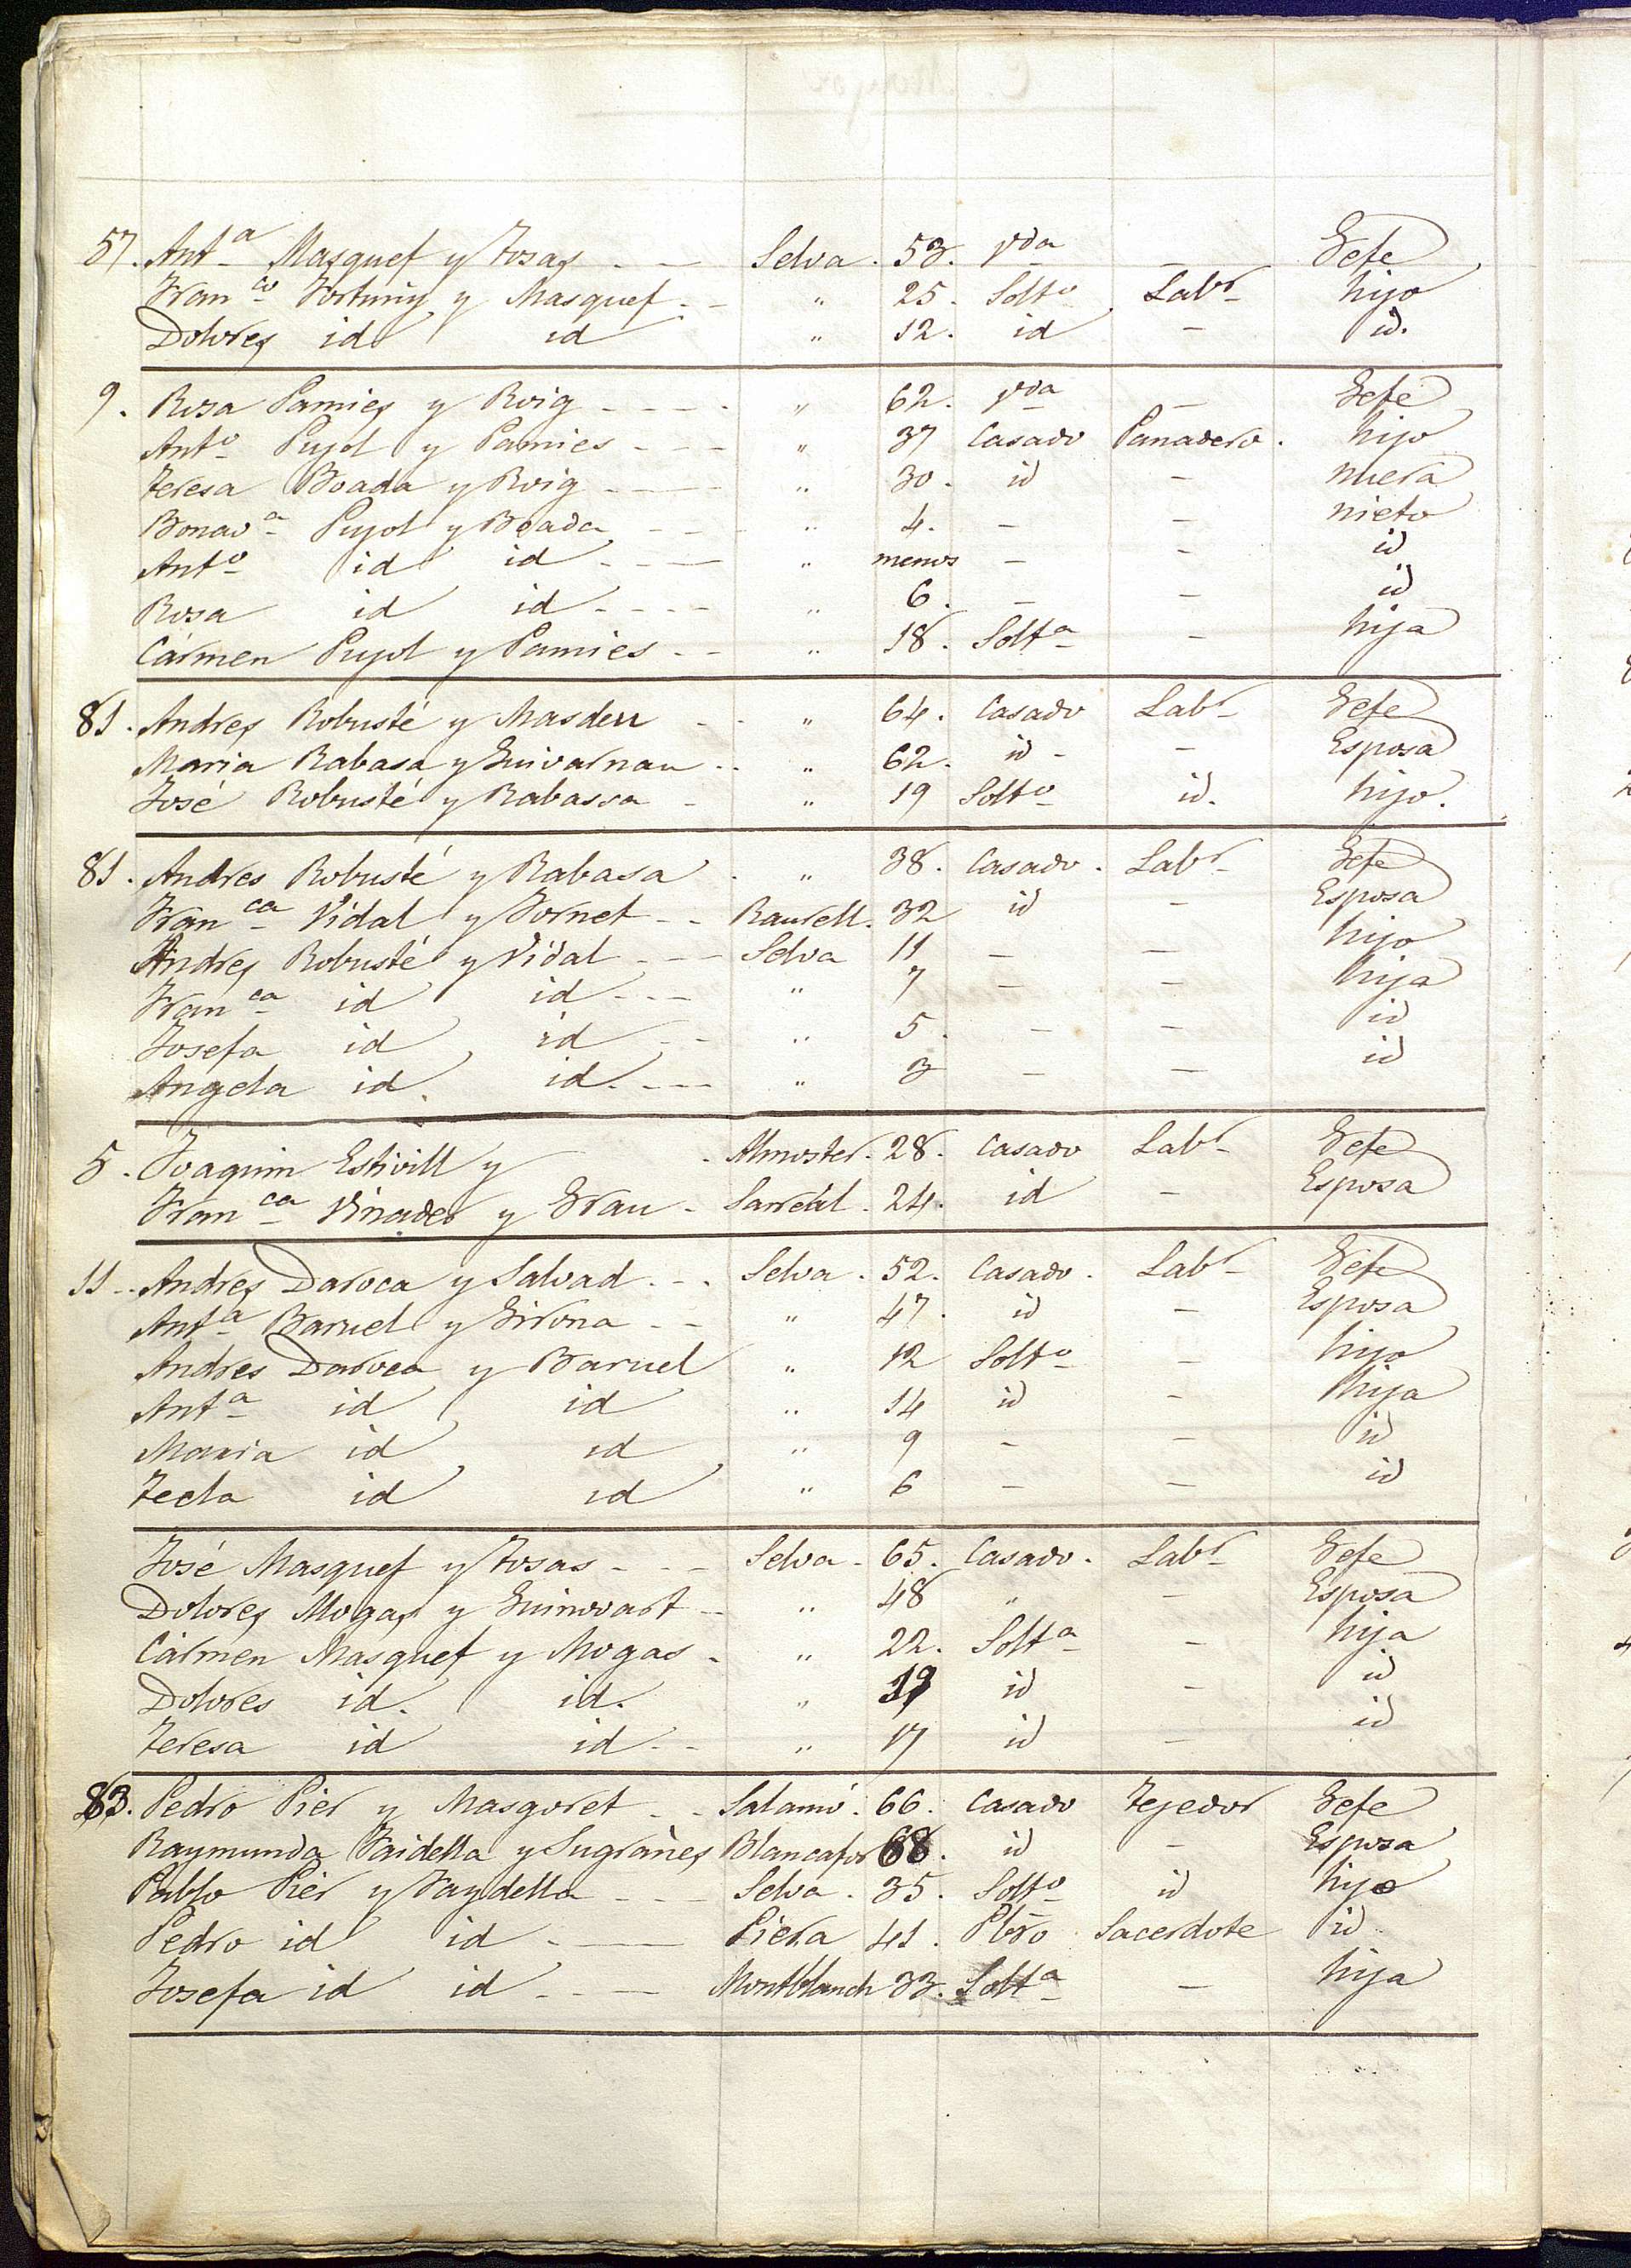 57. Ant.ª Masquef y Fosas - - Selva . 53. V.da - Gefe
Fran.co Fortuny y Masquef - - " 25. Solt.o Lab.r hijo
Dolores id id " 12. id - id.
9. Rosa Pamies y Roig - - - - " 62. V.da - Gefe
Ant.o Pujol y Pamies - - - " 37 Casado Panadero. hijo
Teresa Boada y Roig - - - " 30. id - nuera
Bonav.ª Pujol y Boada - - - " 4. - - nieto
Ant.o id id - - - " menos - - id
Rosa id id - - - - " 6. - - id
Cármen Pujol y Pamies - - " 18. Solt.ª - hija
81. Andres Robusté y Masdeu - - " 64. Casado Lab.r Gefe
Maria Rabasa y Guivarnau - - " 62. id - - Esposa
José Robusté y Rabassa - " 19 Solt.o id. hijo.
81. Andres Robusté y Rabasa - " 38. Casado. Lab.r Gefe
Fran.ca Vidal y Fornet - - Raurell. 32 id - Esposa
Andres Robusté y Vidal - - - Selva 11 - - hijo
Fran.ca id id - - - " 7 - - hija
Josefa id id - - " 5. - - id
Angela id. id. - - - " 3 - - id
5. Joaquin Estivill y - Almoster. 28. Casado Lab.r Gefe
Fran.ca Vinader y Grau - Sarreal. 24. id - Esposa
11 - Andres Daroca y Salvad. - - Selva. 52. Casado. Lab.r Gefe
Ant.ª Baruel y Girona - - " 47. id - Esposa
Andres Daroca y Baruel " 12 Solt.o - hijo
Ant.ª id id " 14 id - hija
Maria id id " 9 - - id
Tecla id id " 6 - - id
José Masquef y Fosas - - - Selva - 65. Casado. Lab.r Gefe
Dolores Mogas y Guinovart - - " 48 " - Esposa
Cármen Masquef y Mogas - " 22. Solt.ª - hija
Dolores id. id. " 19 id - id
Teresa id id - - " 17 id - id
83. Pedro Pier y Masgoret - - Salamó. 66. Casado Tejedor Gefe
Raymunda Faidella y Sugrañes Blancafor 68. id - Esposa
Pablo Pier y Faydella - - - Selva. 35. Solt.o id hijo
Pedro id id - - Piera 41. Pbro Sacerdote id
Josefa id id - - - Montblanch 33. Solt.ª - hija